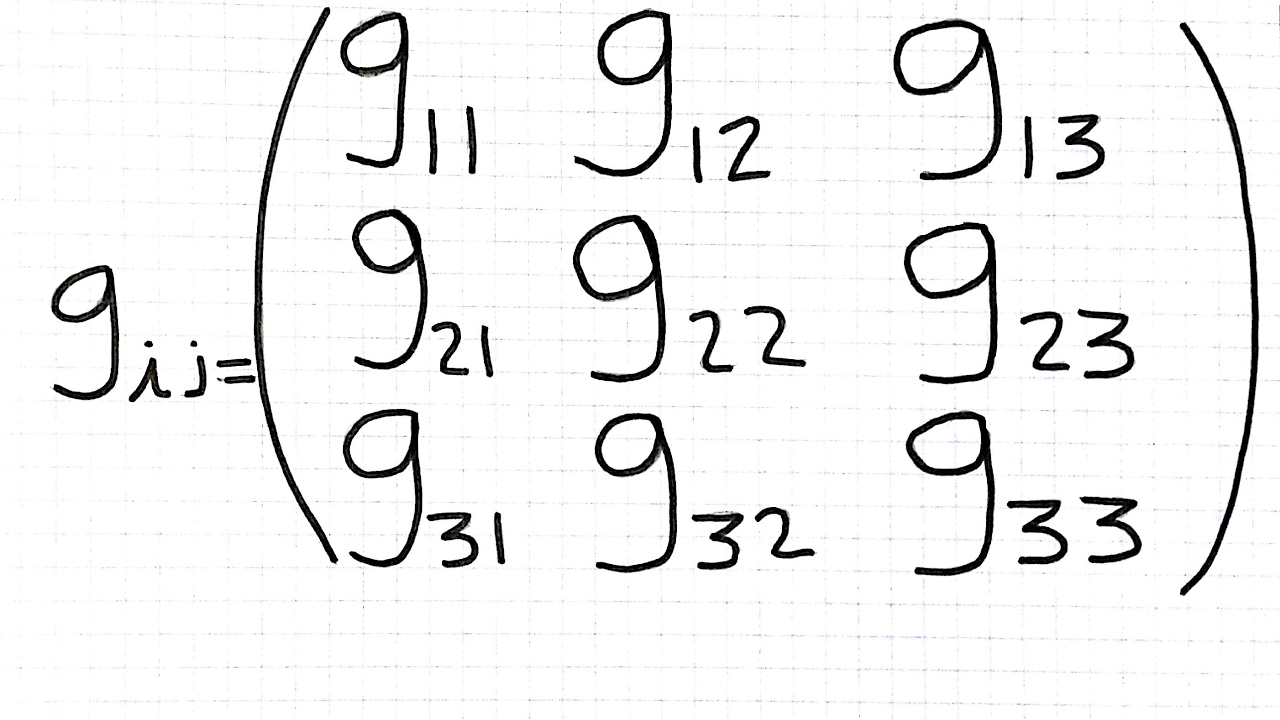 g₁₁ g₁₂ g₁₃
gᵢⱼ= g₂₁ g₂₂ g₂₃
g₃₁ g₃₂ g₃₃